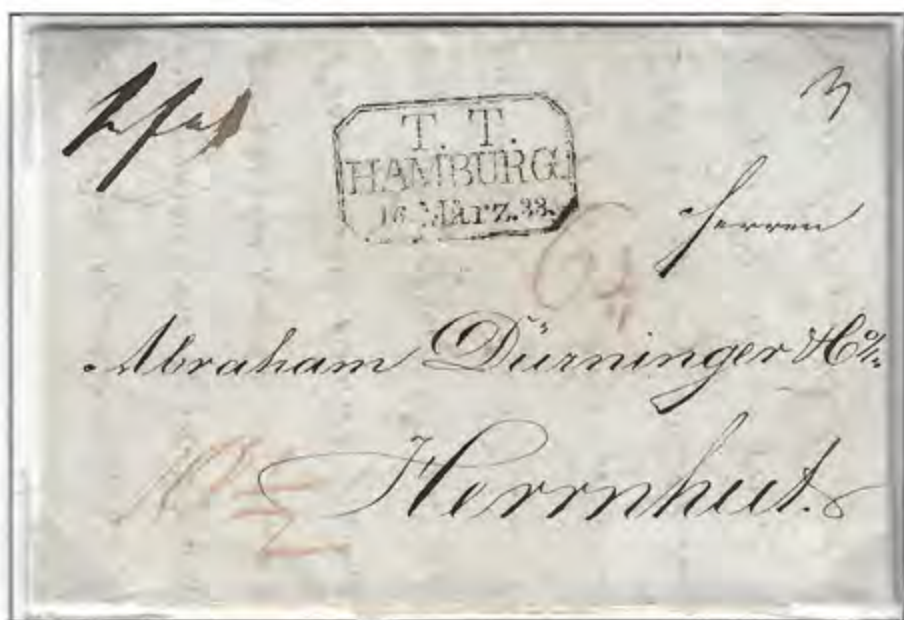 T. T.
HAMBURG.
16. März. 33.
Herren
Abraham Dürninger & Co
Herrnhut.